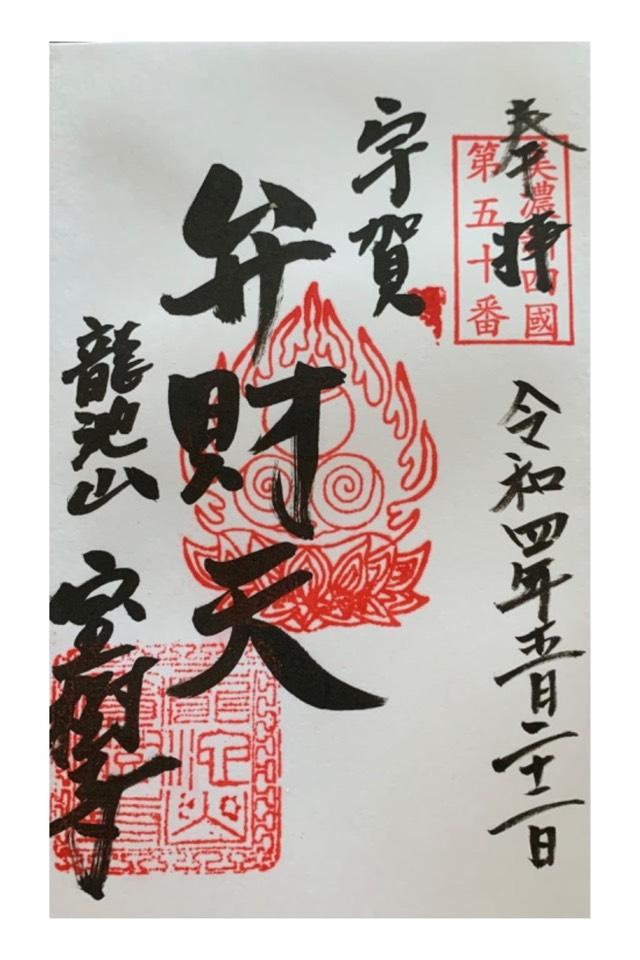 奉拝
美濃新四國
第五十番
令和四年 月二十二日
宇賀
弁財天
龍池山 宝樹寺